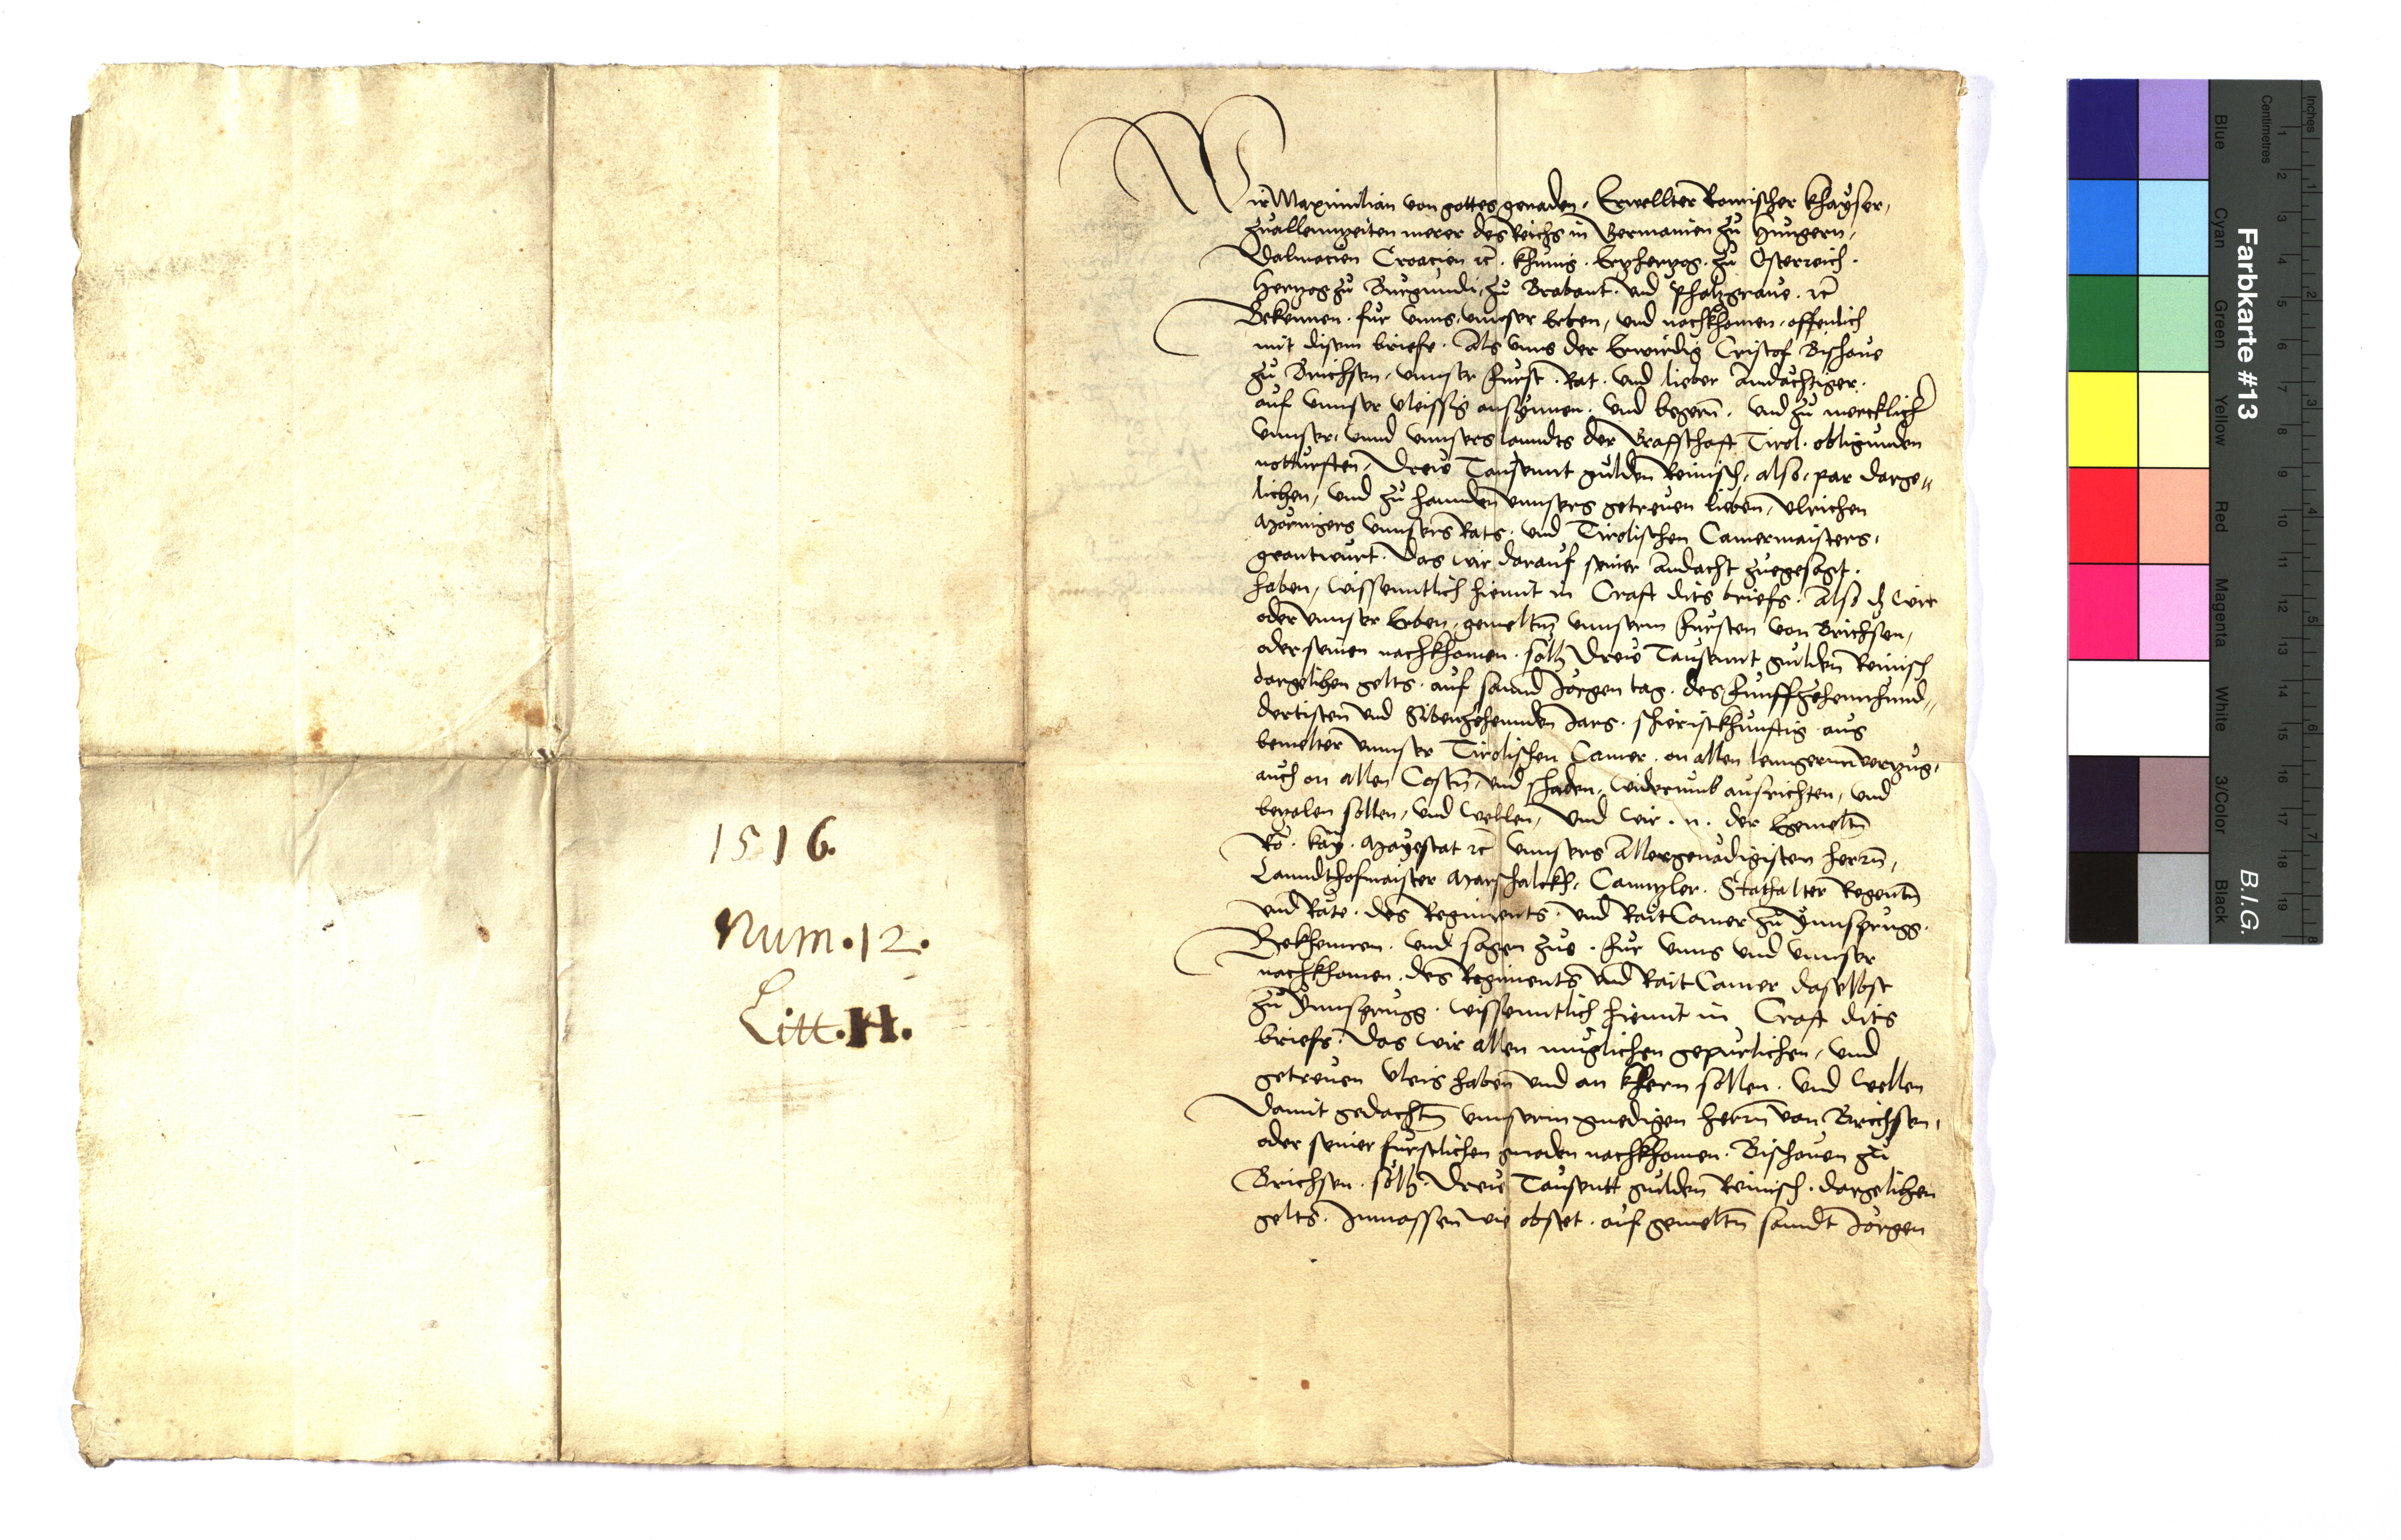 1516.
Num. 12.
Litt. H.
Wir Maximilian von gottes genaden, Erwellter Romischer Khayser,
zuallennzeiten merer des Reichs in Germanien zu Hungern,
Dalmacien Croacien ꝛc. Khunig. Ertzhertzog. zu Osterreich.
Hertzog zu Burgundi, zu Brabant. und Phaltzgrave. ꝛc
Bekennen. fur unns, unnser Erben, und nachkhomen, offenlich
mit disem briefe. Als unns der Erwirdig Cristof Bischove
zu Brichsen, unnser Furst. Rat. und lieber andächtiger.
auf unnser vleissig ansynnen. und begern. und zu mercklich
unnser, unnd unnsers lanndts der Graffschaft Tirol. obligunden
notturften, Dreio Tausennt gulden Reinisch, also, par darge„
lichen, und zu hannden unnsers getreuen lieben, Ulrichen
Moringers unnsers Rats. und Tirolischen Camermaisters,
geantwurt. Das wir darauf seiner andacht zuegesagt.
haben, wissenntlich hiemit in Craft dits briefs. Also dz wir
oder unnser Erben, gemeltn unnserm Fursten von Brichsen,
oder seinen nachkhomen. solh Dreio Tausennt gulden Reinisch
dargelihen gelts. auf sannd Jorgen tag. des Funffzehennhund„
dertisten und Sibenzehennden Jars. schieristkhunftig aus
bemelter unnser Tirolischen Camer. on allen lenngernn vertzug,
auch on allen Costn, und schaden, widerumb ausrichten, und
betzalen sollen, und wellen, Und wir. n. der Egemeltn
Ro. kay. Mayestat ꝛc unnsers Allergenadigisten herrn,
Lanndthofmaister Marschalckh, Canntzler. Stathalter Regentn
und Räte. des Regiments. und RaitCamer zu Ynnsprugg.
Bekhennen. und sagen zue. fur unns und unnser
nachkhomen. des Regiments und RaitCamer daselbst
zu Ynnsprugg. wissenntlich hiemit in Craft dits
briefs. Das wir allen muglichen gepurlichen, und
getreuen vleis haben und an khern sollen. und wellen
Damit gedachtm unnserm gnedigen herrn von Brichsen,
oder seiner furstlichen gnaden nachkhomen. Bischoven zu
Brichsen. solh. Dreio Tausentt gulden Reinisch. dargelihen
gelts. Inmassen wie obstet. auf gemeltn sanndt Jorgen
Farbkarte #13
B.I.G.
Inches
Centimetres
1 2 3 4 5 6 7 8 9 10 11 12 13 14 15 16 17 18 19
1 2 3 4 5 6 7 8
Blue
Cyan
Green
Yellow
Red
Magenta
White
3/Color
Black